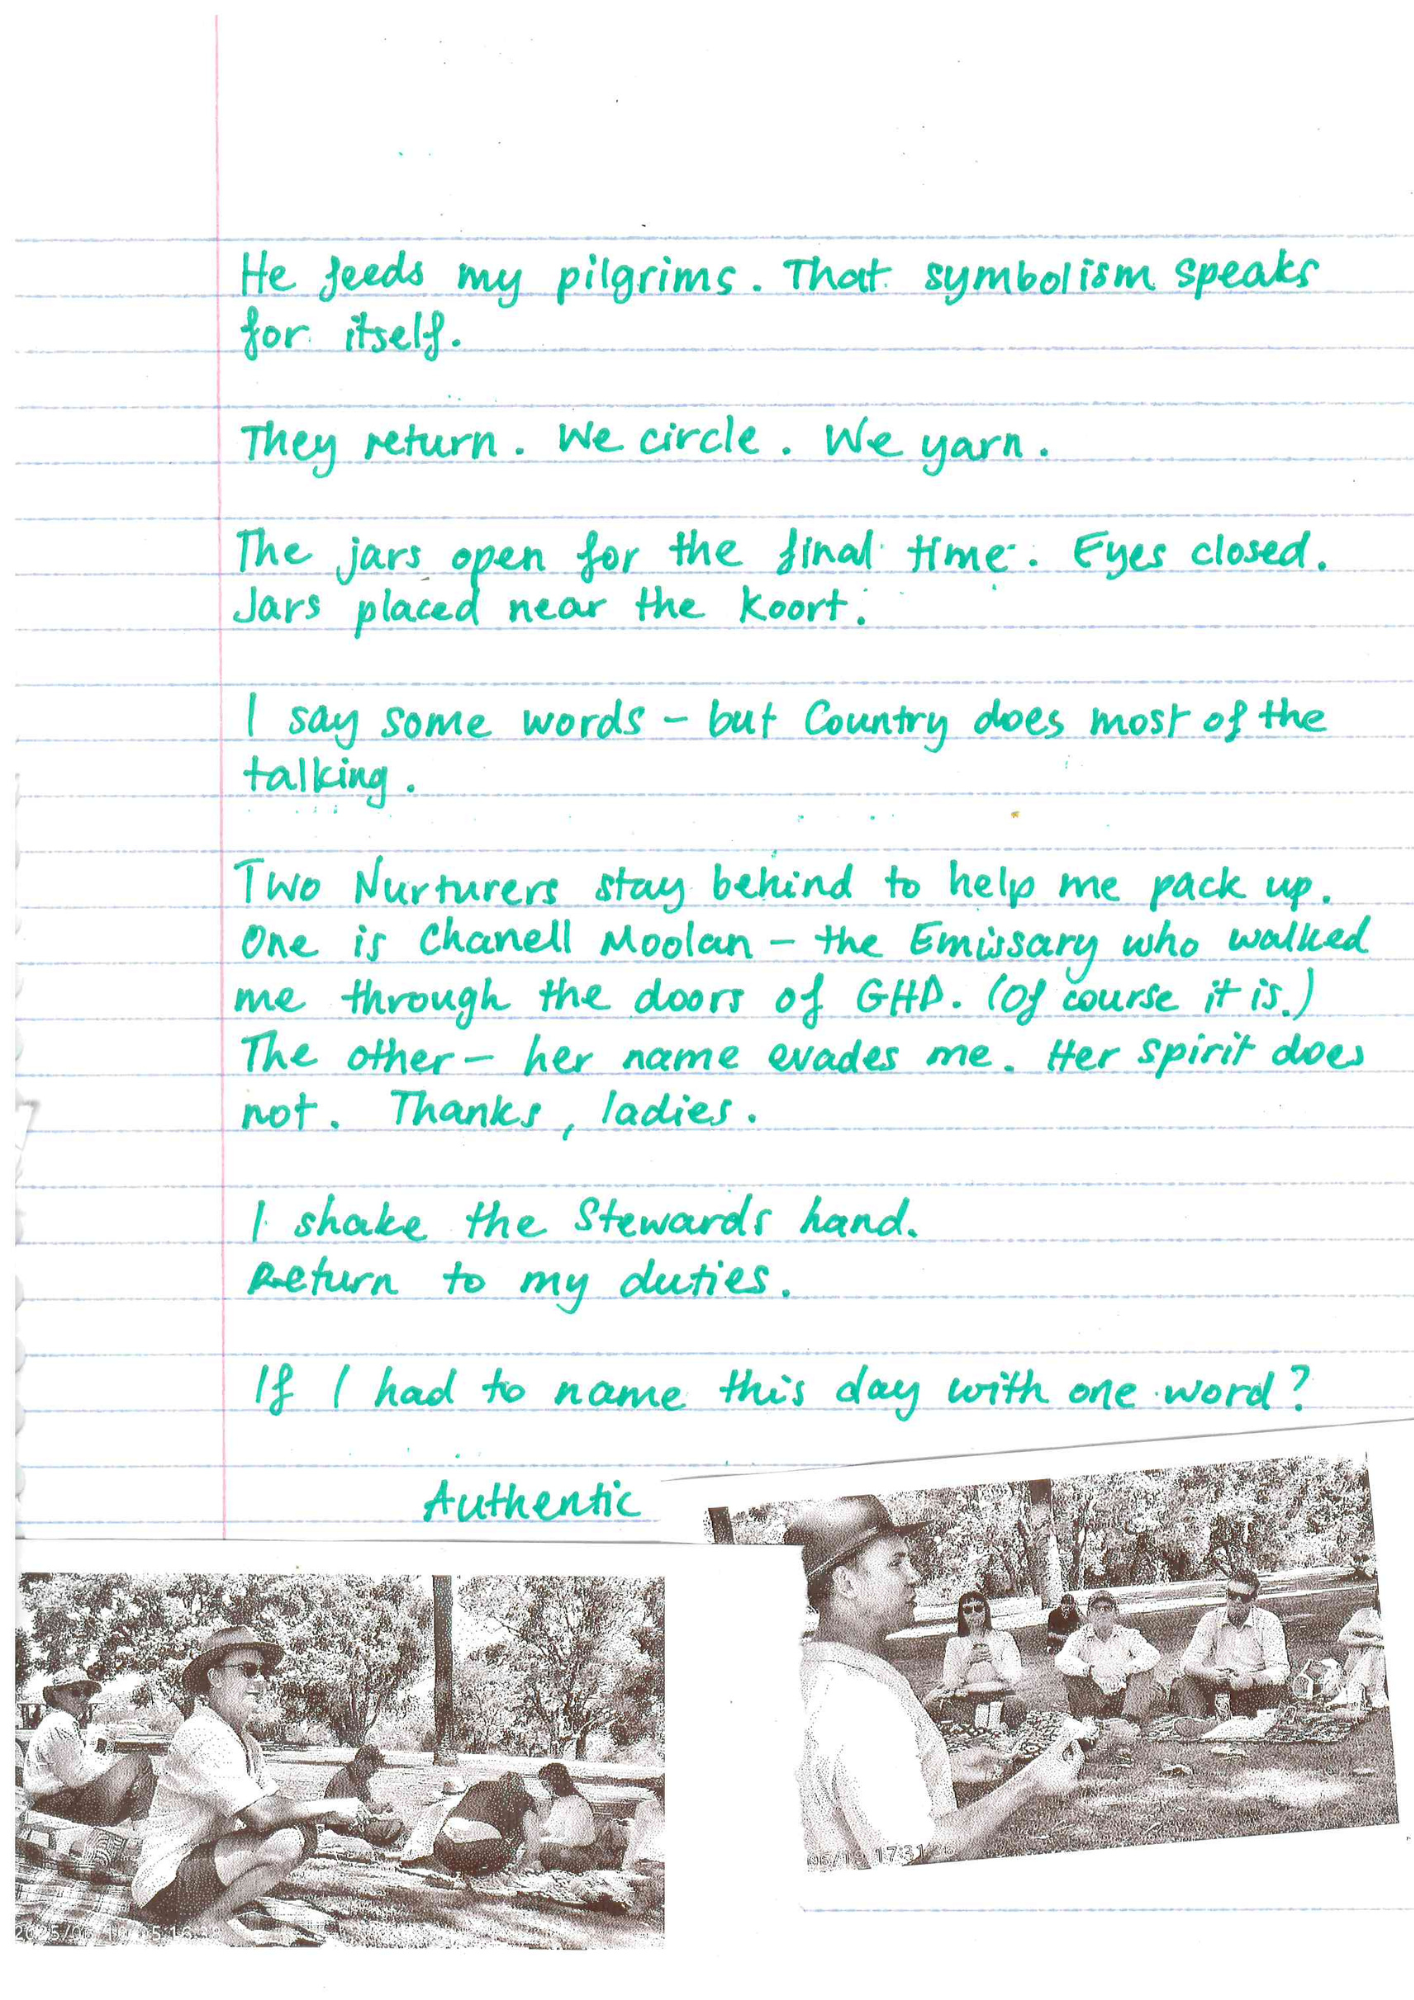 He feeds my pilgrims. That symbolism speaks
for itself.
They return. We circle. We yarn.
The jars open for the final time. Eyes closed.
Jars placed near the Koort.
I say some words - but Country does most of the
talking.
Two Nurturers stay behind to help me pack up.
One is Chanell Moolan - the Emissary who walked
me through the doors of GHD. (Of course it is.)
The other - her name evades me. Her spirit does
not. Thanks, ladies.
I shake the Stewards hand.
Return to my duties.
If I had to name this day with one word?
Authentic
17:31